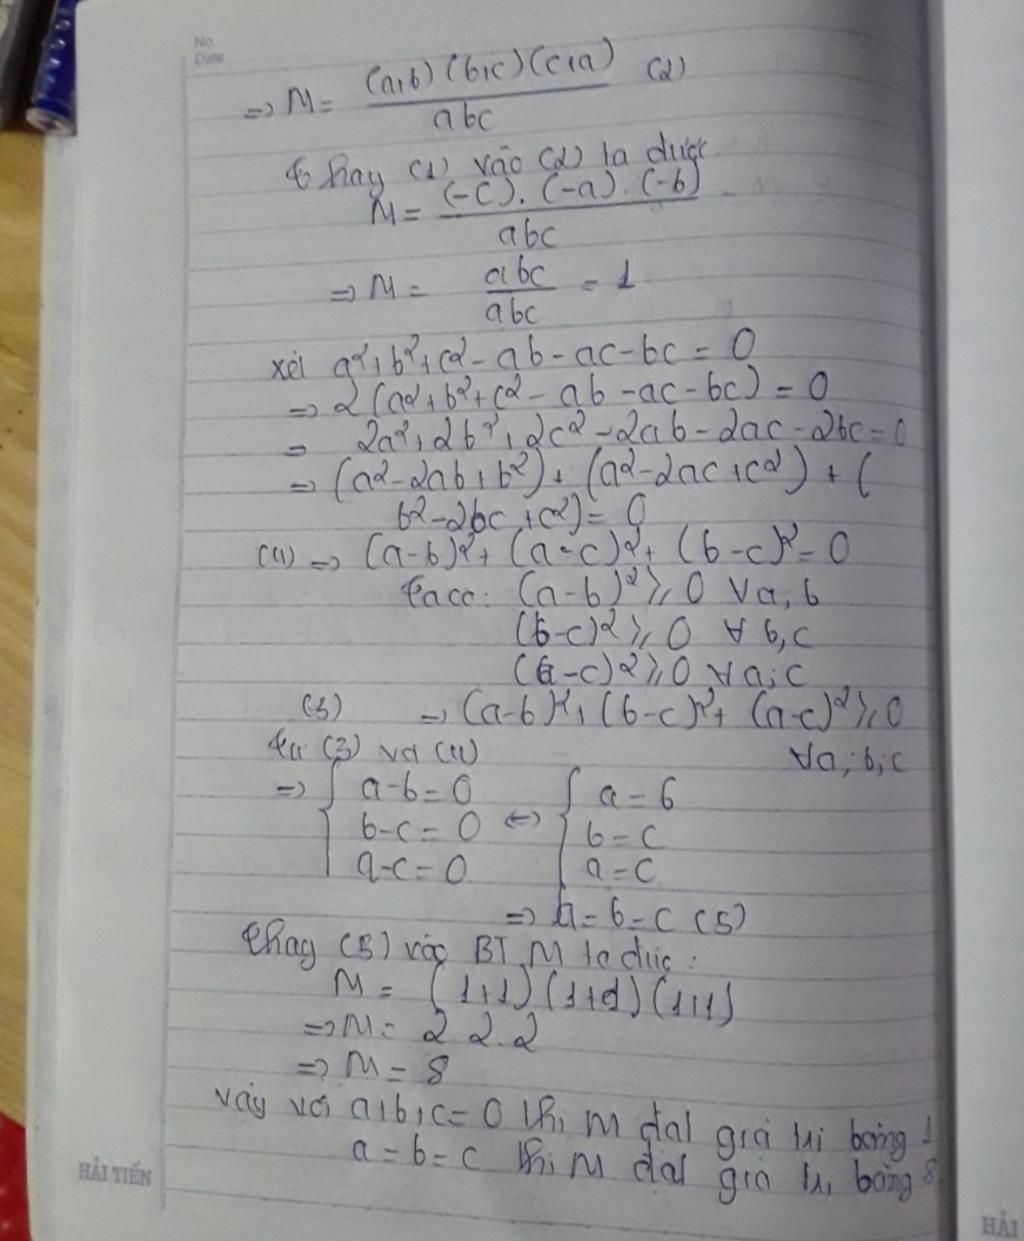 No.
Date
=> M = (a+b)(b+c)(c+a) / abc (2)
Thay (1) vào (2) ta được
M = (-c).(-a).(-b) / abc
=> M = abc / abc = 1
xét a²+b²+c²-ab-ac-bc = 0
=> 2(a²+b²+c²-ab-ac-bc) = 0
= 2a²+2b²+2c²-2ab-2ac-2bc=0
=> (a²-2ab+b²)+(a²-2ac+c²)+(
b²-2bc+c²)= 0
(4) => (a-b)²+(a-c)²+(b-c)²=0
Ta có: (a-b)² ≥ 0 ∀a;b
(b-c)² ≥ 0 ∀ b,c
(a-c)² ≥ 0 ∀a;c
(3) => (a-b)²+(b-c)²+(a-c)² ≥ 0
Từ (3) và (4) ∀a;b;c
=> { a-b=0 <=> { a=b
b-c=0 b=c
a-c=0 a=c
=> a=b=c (5)
Thay (5) vào BT M ta được:
M = (1+1)(1+1)(1+1)
=> M = 2 2.2
=> M = 8
vậy với a+b+c=0 thì M đạt giá trị bằng 1
a=b=c thì M đạt giá trị bằng 8.
HẢI TIẾN
HẢI